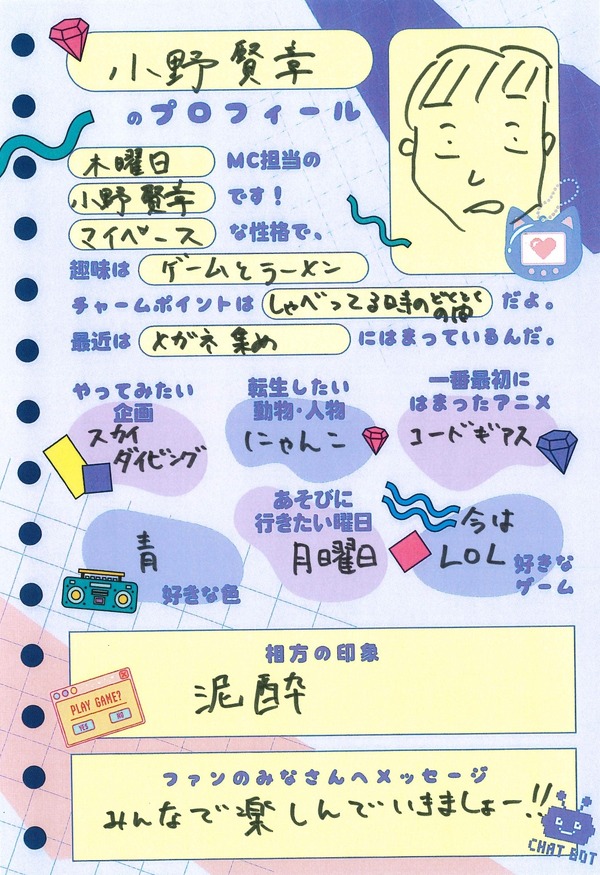 小野賢章
のプロフィール
木曜日 MC担当の
小野 賢章 です！
マイペース な性格で、
趣味は ゲームとラーメン
チャームポイントは しゃべってる時のどくとくの間 だよ。
最近は メガネ集め にはまっているんだ。
やってみたい
企画
スカイ
ダイビング
転生したい
動物・人物
にゃんこ
一番最初に
はまったアニメ
コードギアス
青
好きな色
あそびに
行きたい曜日
月曜日
今は
LOL
好きな
ゲーム
相方の印象
泥酔
PLAY GAME?
YES NO
ファンのみなさんへメッセージ
みんなで楽しんでいきましょー!!
CHAT BOT